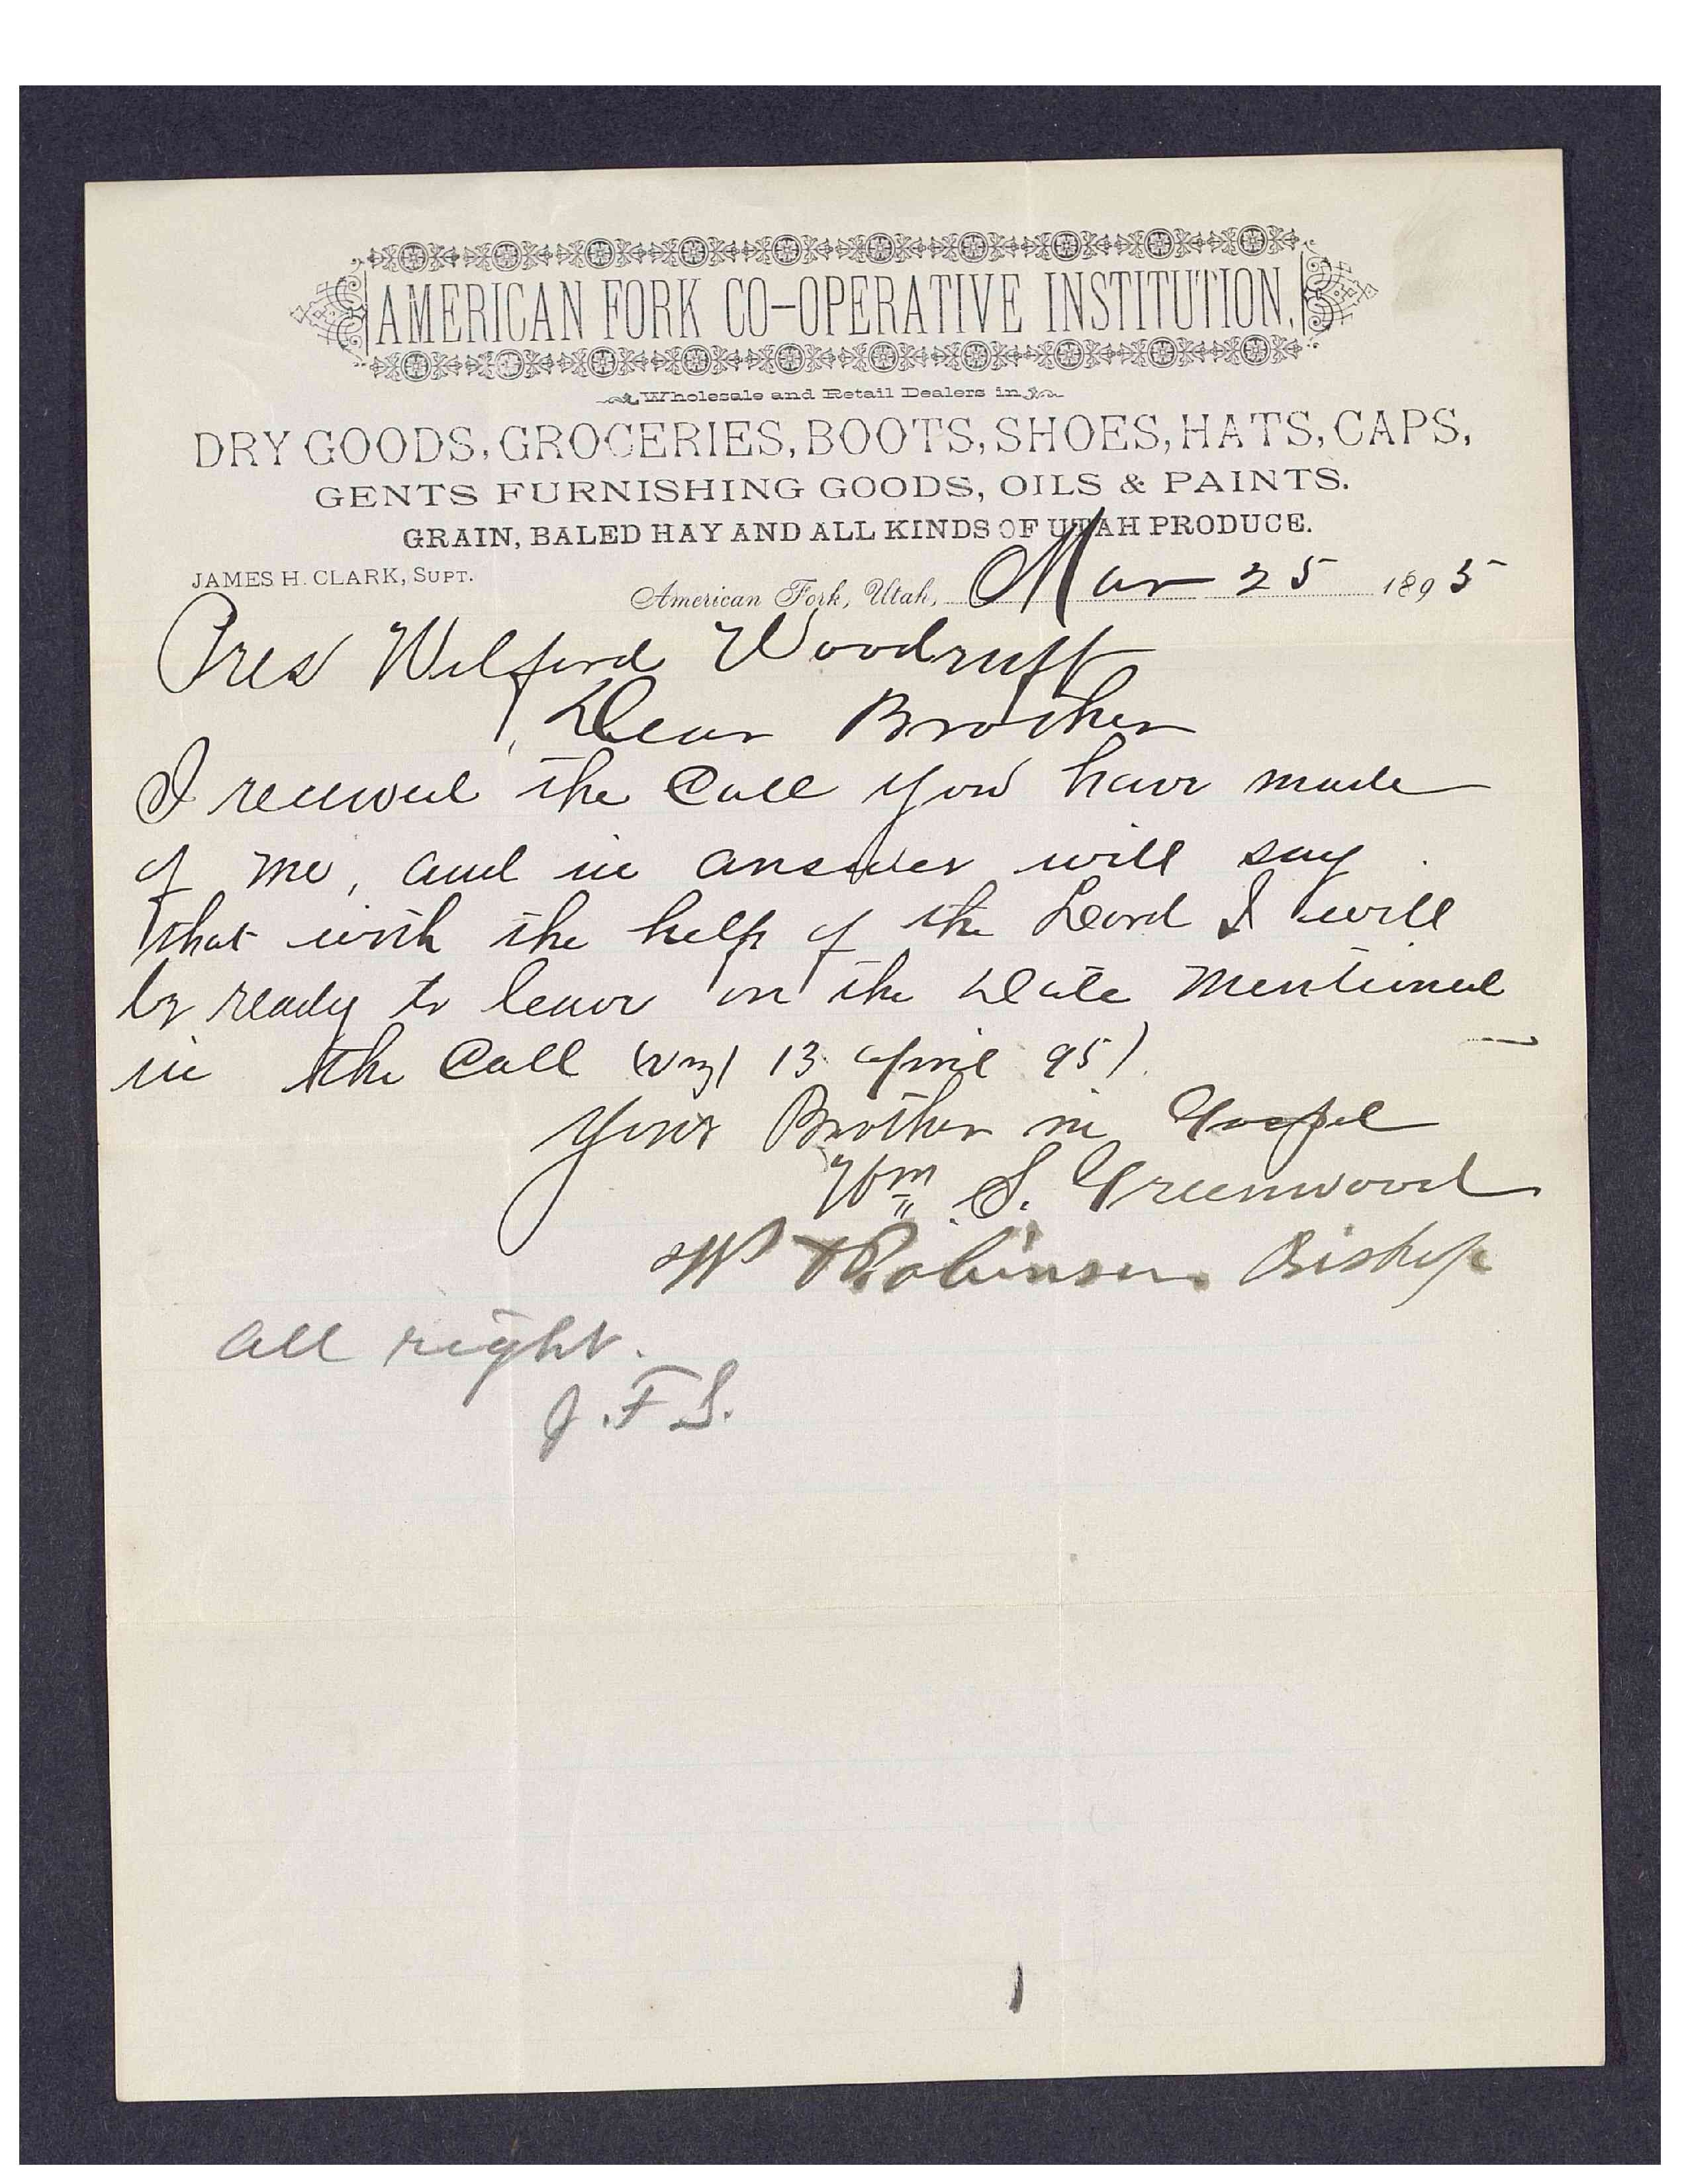 AMERICAN FORK CO-OPERATIVE INSTITUTION.
Wholesale and Retail Dealers in
DRY GOODS, GROCERIES, BOOTS, SHOES, HATS, CAPS,
GENTS FURNISHING GOODS, OILS & PAINTS.
GRAIN, BALED HAY AND ALL KINDS OF UTAH PRODUCE.
JAMES H. CLARK, SUPT.
American Fork, Utah, Mar 25 1895
Pres Wilford Woodruff
Dear Brother
I received the Call you have made
of me, and in answer will say
that with the help of the Lord I will
be ready to leave on the Date Mentioned
in the Call (viz) 13 April 95)
Your Brother in Gospel
Wm S. Greenwood
Robinson Bishop
All right.
J. F. S.